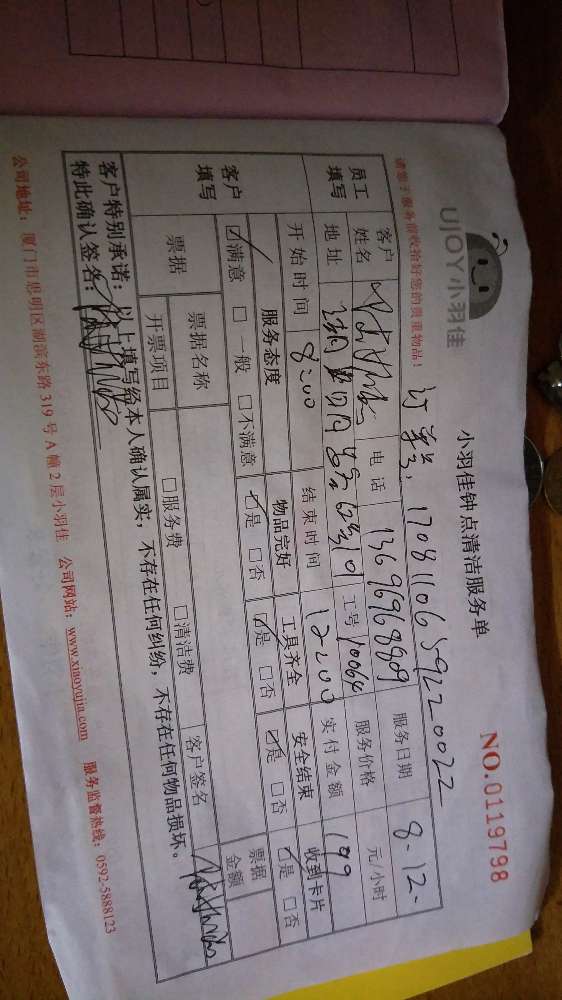 UJOY小羽佳
小羽佳钟点清洁服务单
NO.0119798
请您于服务前收拾好您的贵重物品!
订单号: 1708110659220022
员工填写
客户姓名
电话 13696968809
服务日期 8.12.
地址
62号101
工号 10064
服务价格 元/小时
开始时间 8:00
结束时间 12:00
实付金额 199
客户填写
服务态度 物品完好 工具齐全 安全结束 收到卡片
☑满意 □一般 □不满意 ☑是 □否 ☑是 □否 ☑是 □否 ☑是 □否
票据 票据名称 票据金额
开票项目 □服务费 □清洁费 客户签名
客户特别承诺: 以上填写给本人确认属实, 不存在任何纠纷, 不存在任何物品损坏。
特此确认签名:
公司地址: 厦门市思明区湖滨东路319号A幢2层小羽佳 公司网站: www.xiaoyujia.com 服务监督热线: 0592-5888123